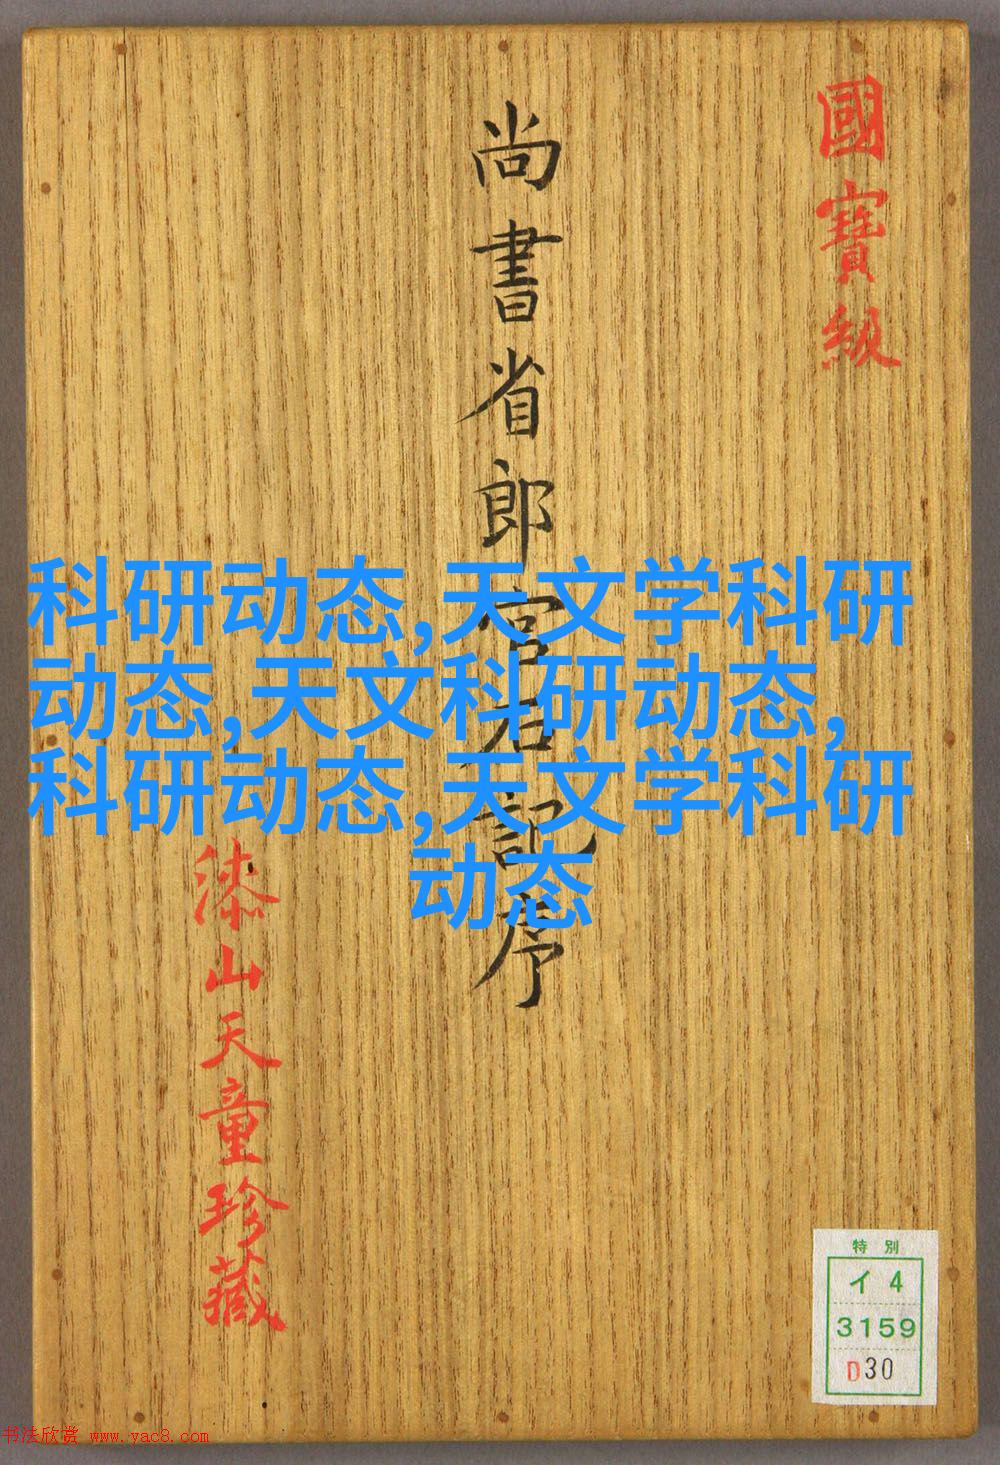 國寶級
尚書省郎官石記序
漆山天童珍藏
科研动态,天文学科研
动态,天文科研动态,
科研动态,天文学科研
动态
特別
イ4
3159
D30
书法欣赏 www.yac8.com